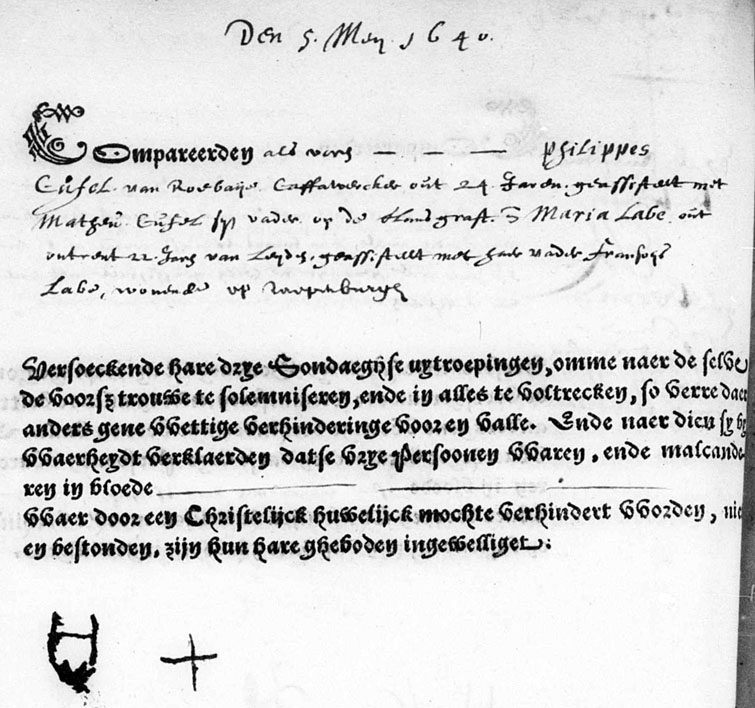 Den 5. May 1640.
Compareerden als voren — — — Philippes
Cusel. van Roebaije. Caffawercker. out 24 Jaren. geassisteert met
Matheu. Cusel sijn vader op de graft. Maria Labe, out
ontrent 22 Jaren van Leyden, geassisteert met haer vader Fransoijs
Labe, wonende op raepenburgh
Versoeckende hare drye Sondaeghse uytroepingen, omme naer de selve
de voorsz trouwe te solemniseren, ende in alles te voltrecken, so verre daer
anders gene VVettige verhinderinge voor en valle. Ende naer dien sy by
VVaerheydt verklaerden datse vrye Persoonen VVaren, ende malcande
ren in bloede
VVaer door een Christelijck huwelijck mochte verhindert VVorden, nie
en bestonden, zijn hun hare gheboden ingewelliget: